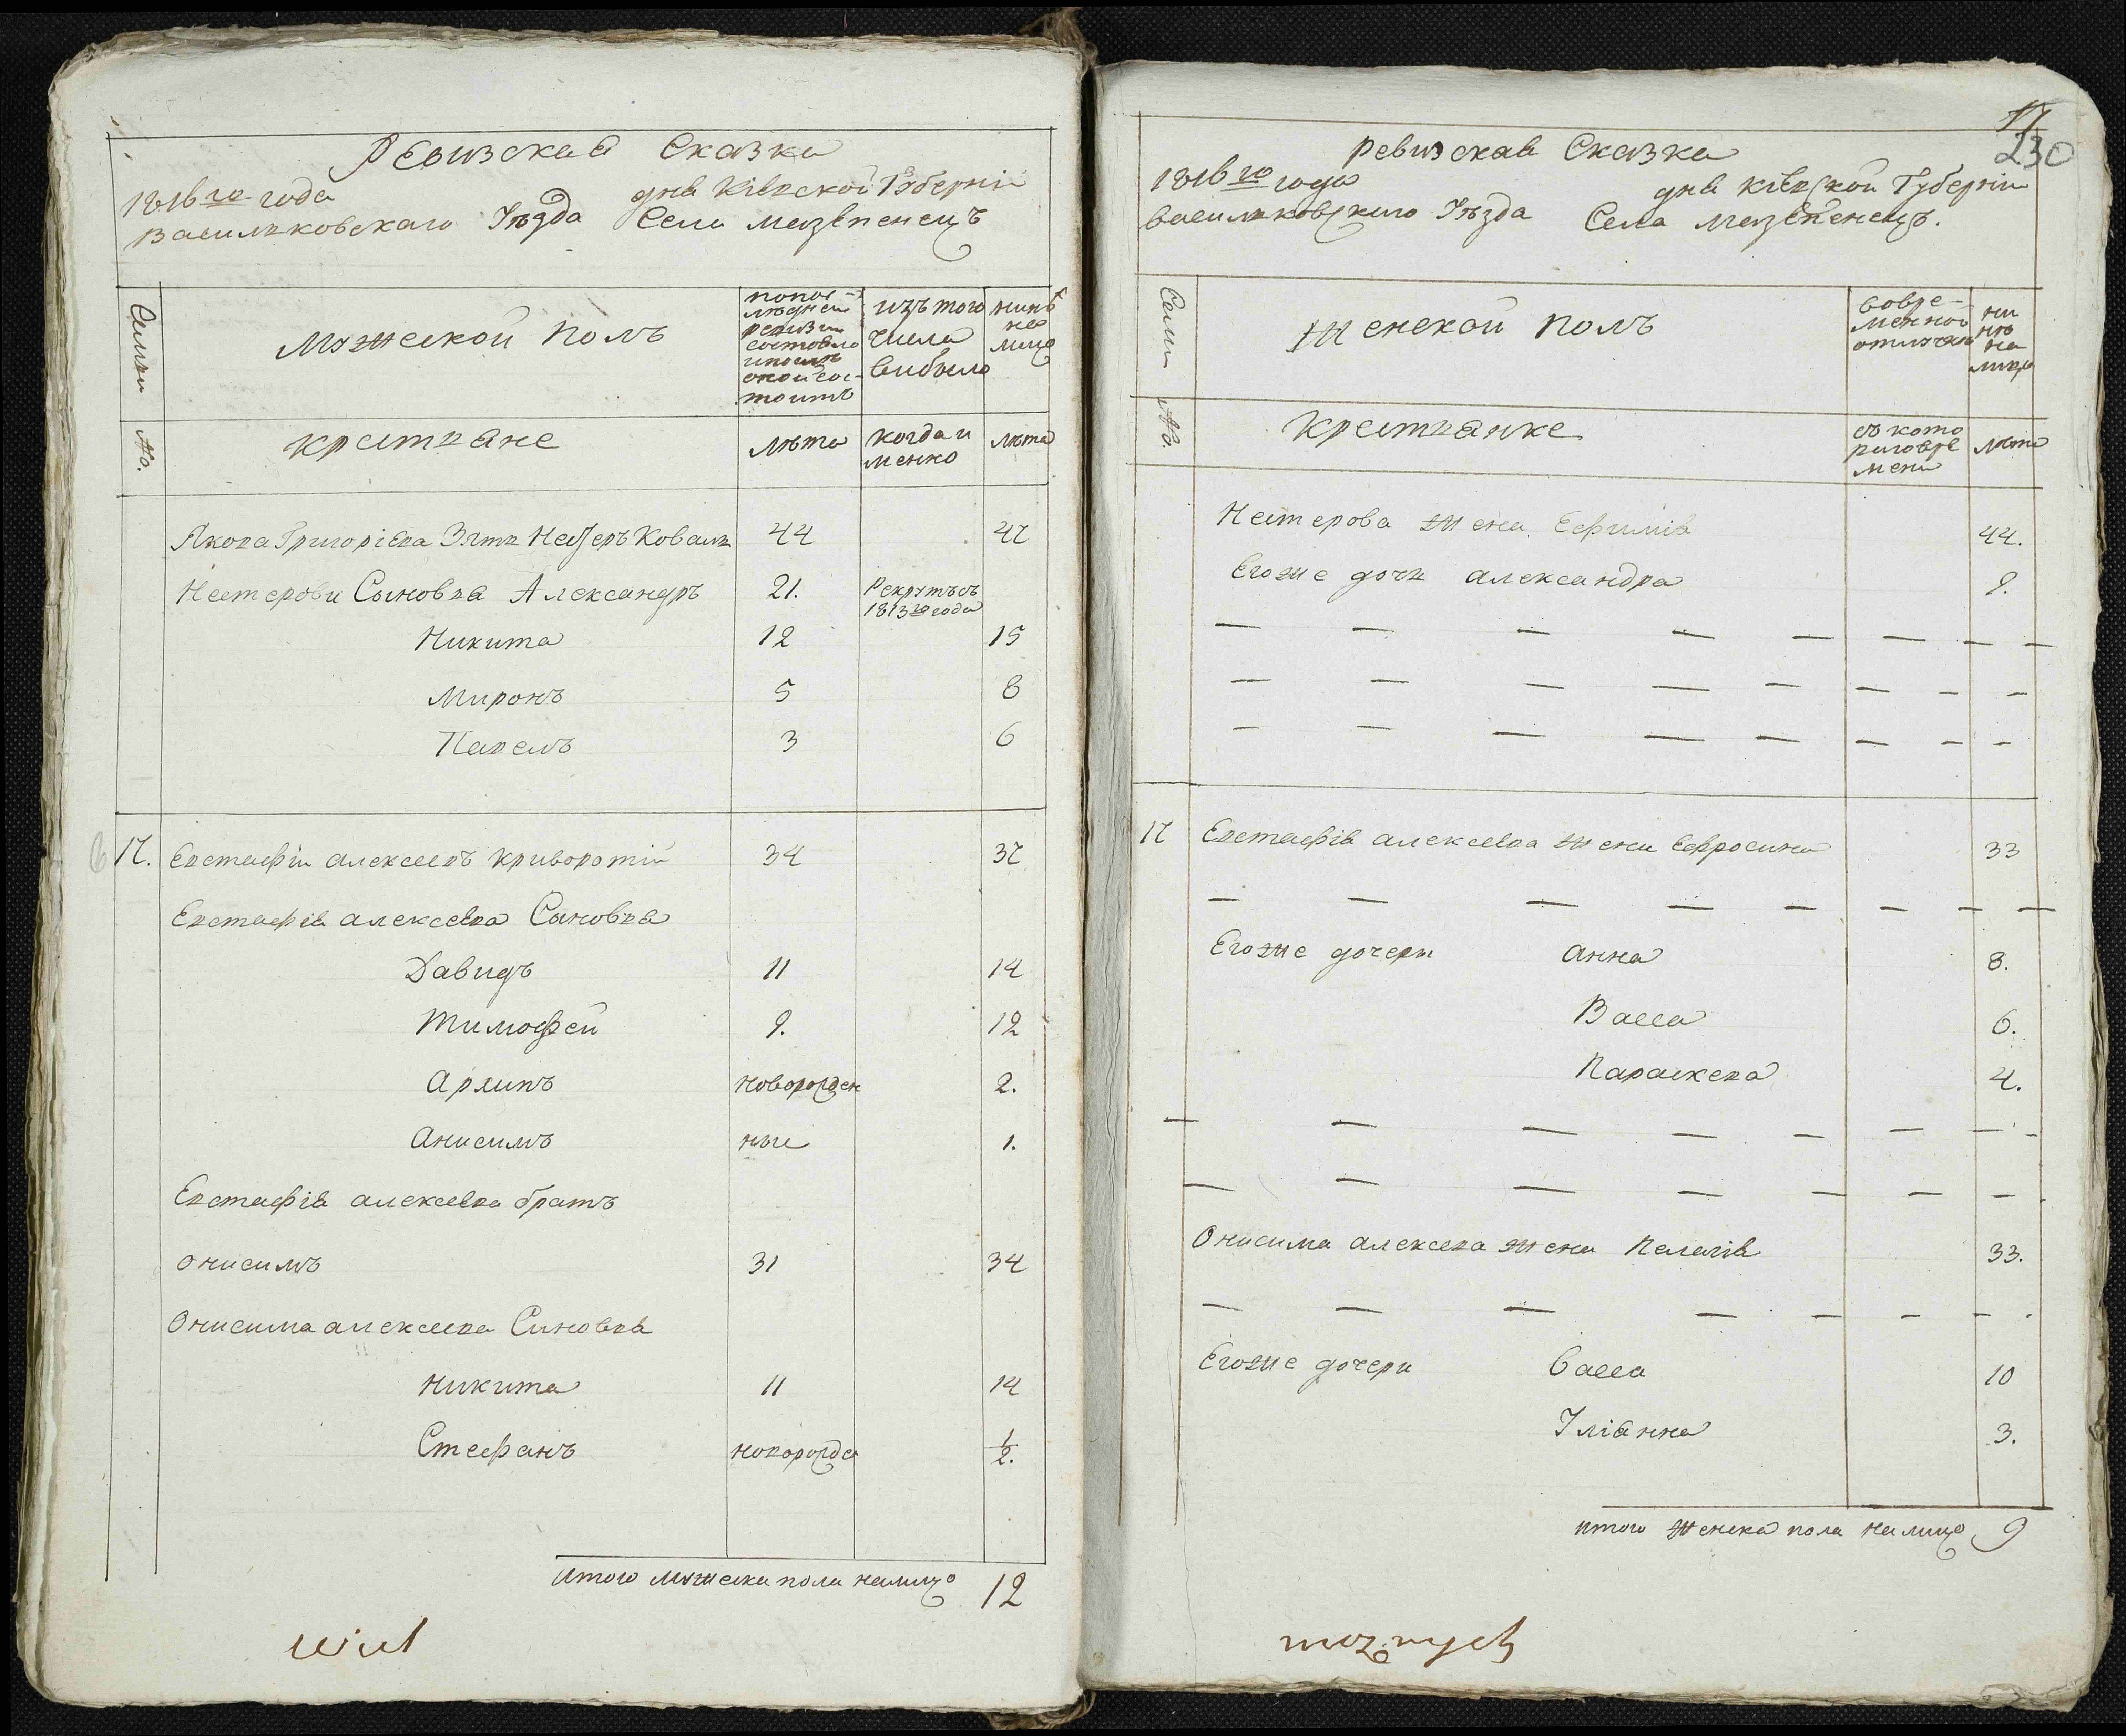 Ревизская Сказка
1816го года дня Кіевской Губерніи
Васильковскаго Уѣзда Села Мазепенецъ
Семьи
Мужеской Полъ
попос-
лѣдней
ревизіи
состояло
и послѣ
оной сос-
тоитъ
изъ того
числа
выбыло
нинѣ
на
лицо
№.
крестяне
лѣта
когда и
менно
лѣта
Якова Григоріева Зять Нестеръ Коваль 44 47
Нестерови Сыновья Александръ 21. Рекрутъ съ
1813го года
Никита 12 15
Миронъ 5 8
Павелъ 3 6
17. Евстафіи алексеевъ криворотій 34 37
Евстафія алексеева Сыновья
Давидъ 11 14
Тимофей 9. 12
Архипъ новорожден 2.
Анисимъ ные 1.
Евстафія алексеева братъ
онисимъ 31 34
Онисима алексеева Синовья
Никита 11 14
Стефанъ новорожде 1/2.
Итого мужеска пола налицо 12
wieś
17
230
Ревизская Сказка
1816го года дня Кіевской Губерніи
Васильковскаго Уѣзда Села Мазепенецъ.
Семьи
Женской Полъ
вовре-
менной
отлучки
ни
нѣ
на
лицо
№.
Крестянке
съ кото
раговре
мени
лѣта
Нестерова жена Ефимія 44.
Егоже дочь александра 9.
17 Евстафія алексеева жена Ефросина 33
Егоже дочери анна 8.
Васса 6.
Параскева 4.
Онисима алексеева жена Пелагія 33.
Егоже дочери Васса 10
Уліанна 3.
итого женска пола налицо 9